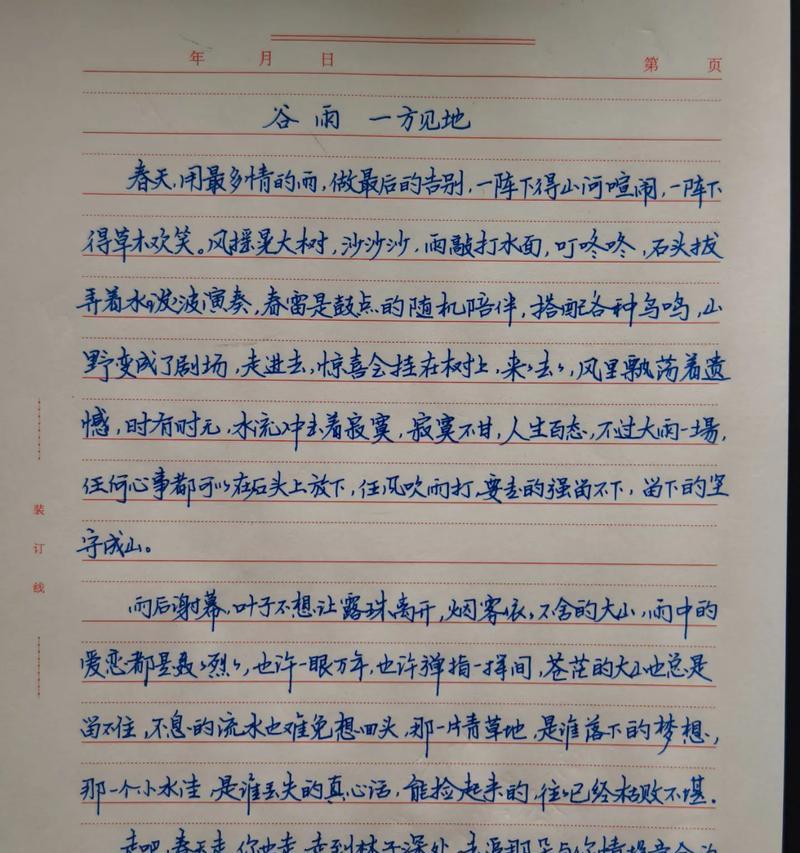 年 月 日 第 页
谷雨 一方见地
春天,用最多情的雨,做最后的告别,一阵下得山河喧闹,一阵下
得草木欢笑。风摇晃大树,沙沙沙,雨敲打水面,叮咚咚,石头拨
弄着水波演奏,春雷是鼓点的随机陪伴,搭配各种鸟鸣,山
野变成了剧场,走进去,惊喜会挂在树上,来来去去,风里飘荡着遗
憾,时有时无,水流冲击着寂寞,寂寞不甘,人生百态,不过大雨一场,
任何心事都可以在石头上放下,任风吹雨打,要走的强留不下,留下的坚
守成山。
雨后谢幕,叶子不想让露珠离开,烟雾依依不舍的大山,雨中的
爱恋都是轰轰烈烈,也许一眼万年,也许弹指一挥间,苍茫的大山也总是
留不住,不息的流水也难免想回头,那一片青草地,是谁落下的梦想,
那一个小水洼,是谁丢失的真心话,能捡起来的,往往已经枯败不堪.
走吧,春天走,你也走,走到林子深处,去追那朵与你情投意合的
装订线